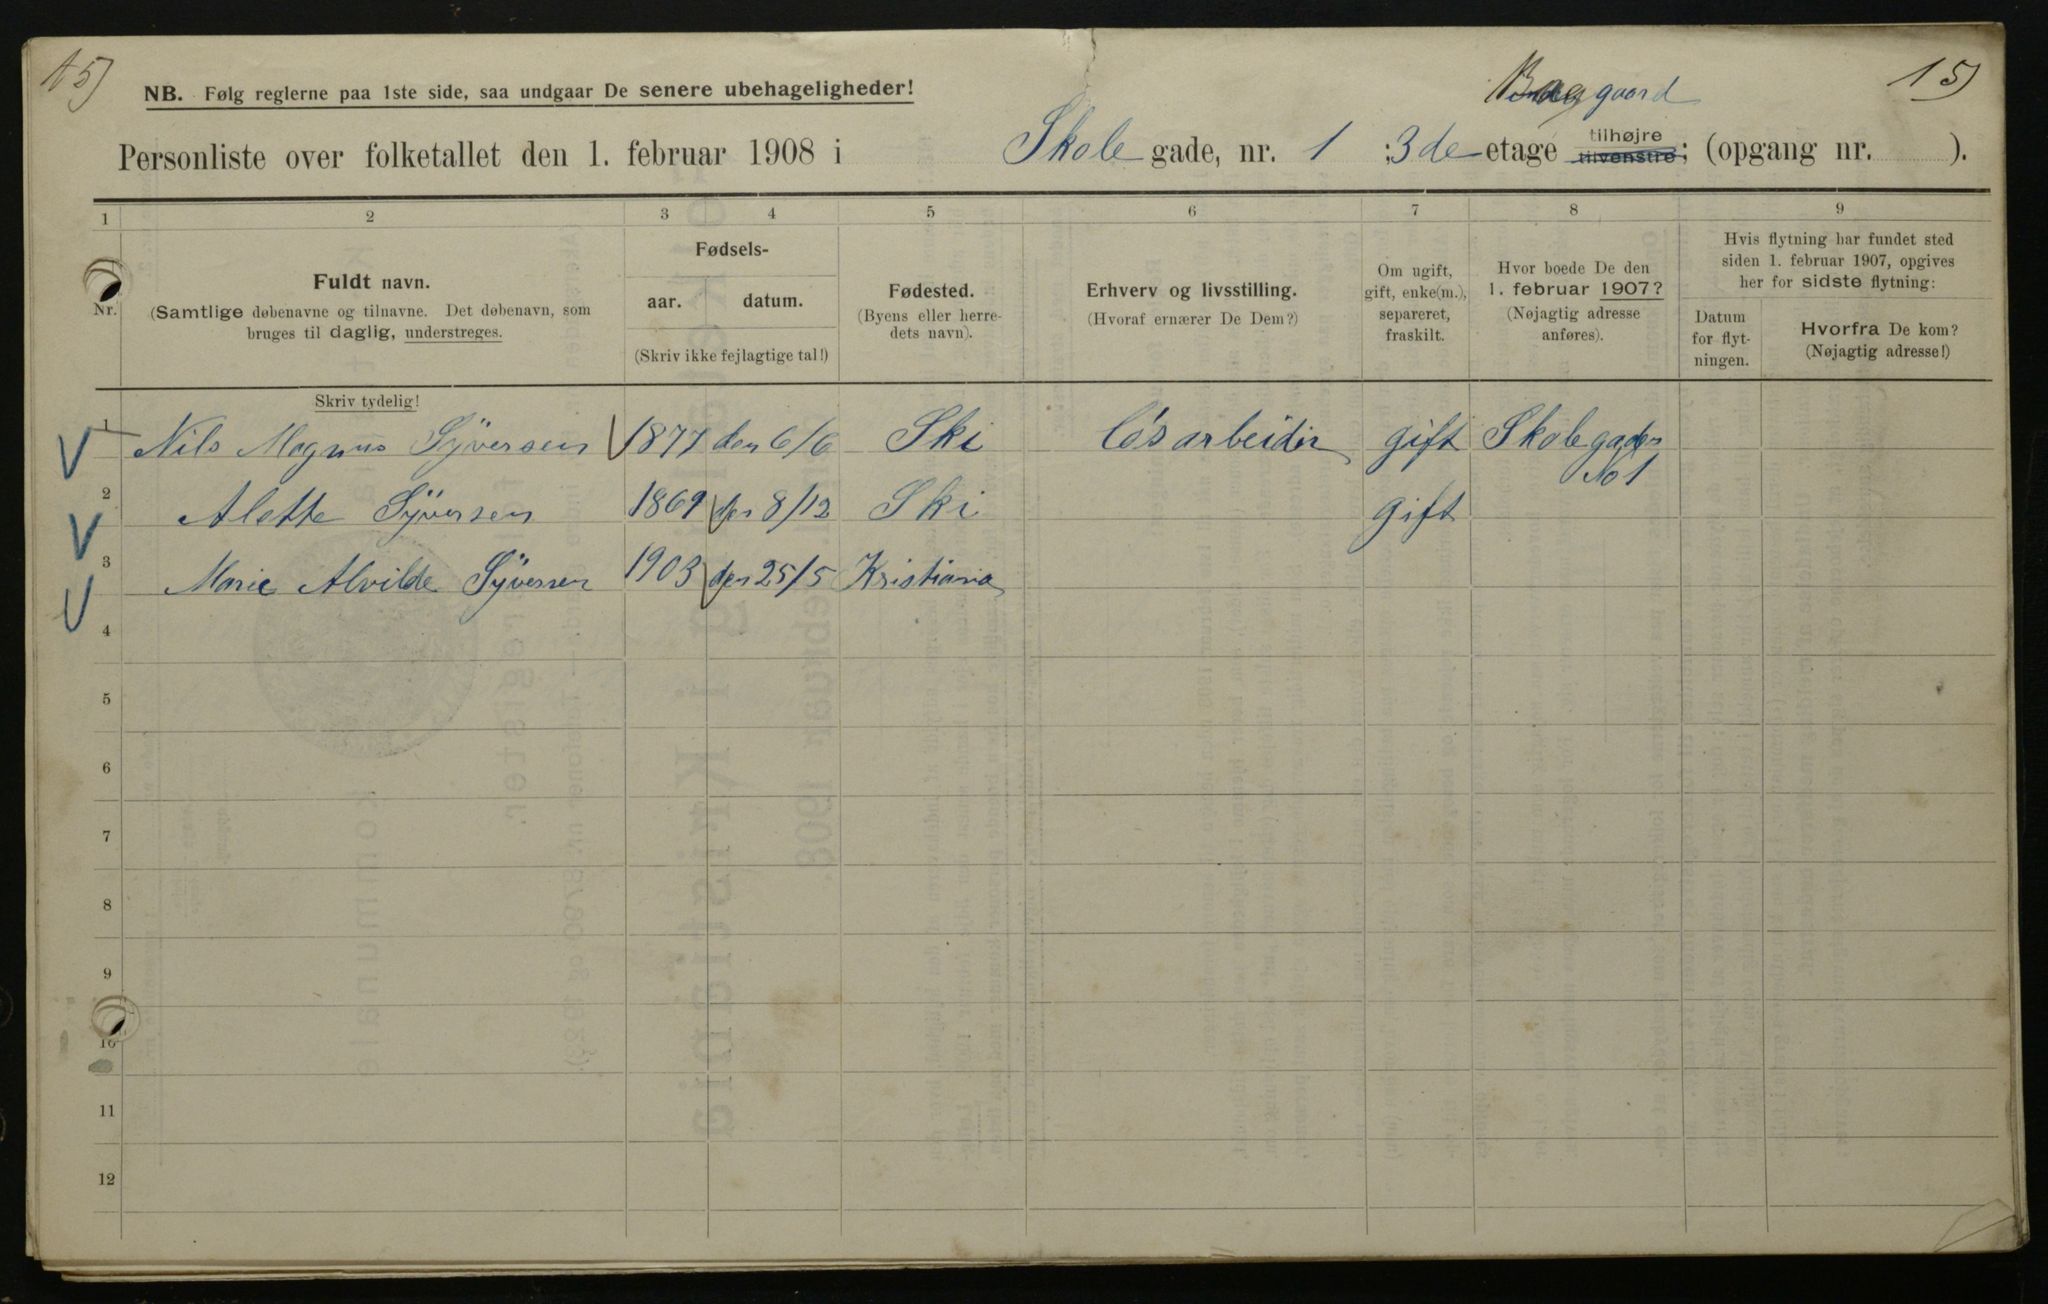 15) Bag gaard 15)
NB. Følg reglerne paa 1ste side, saa undgaar De senere ubehageligheder!
Personliste over folketallet den 1. februar 1908 i Skole gade, nr. 1 ; 3de etage tilhøjre tilvenstre; (opgang nr. ).
1 2 3 4 5 6 7 8 9
Nr.
Fuldt navn.
(Samtlige døbenavne og tilnavne. Det døbenavn, som
bruges til daglig, understreges.
Fødsels-
aar. datum.
(Skriv ikke fejlagtige tal!)
Fødested.
(Byens eller herre-
dets navn).
Erhverv og livsstilling.
(Hvoraf ernærer De Dem?)
Om ugift,
gift, enke(m.),
separeret,
fraskilt.
Hvor boede De den
1. februar 1907?
(Nøjagtig adresse
anføres).
Hvis flytning har fundet sted
siden 1. februar 1907, opgives
her for sidste flytning:
Datum
for flyt-
ningen.
Hvorfra De kom?
(Nøjagtig adresse!)
Skriv tydelig!
1 Nils Magnus Syversen 1877 den 6/6 Ski Løsarbeider gift Skolegaden
No 1
2 Alette Syversen 1869 den 8/12 Ski gift
3 Marie Alvilde Syversen 1903 den 25/5 Kristiania
4
5
6
7
8
9
10
11
12